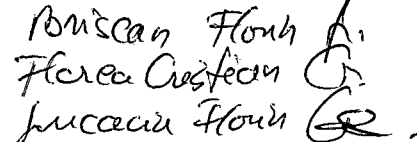 Boriscan Florin
Florea Cristian C.
Lucaciu Florin